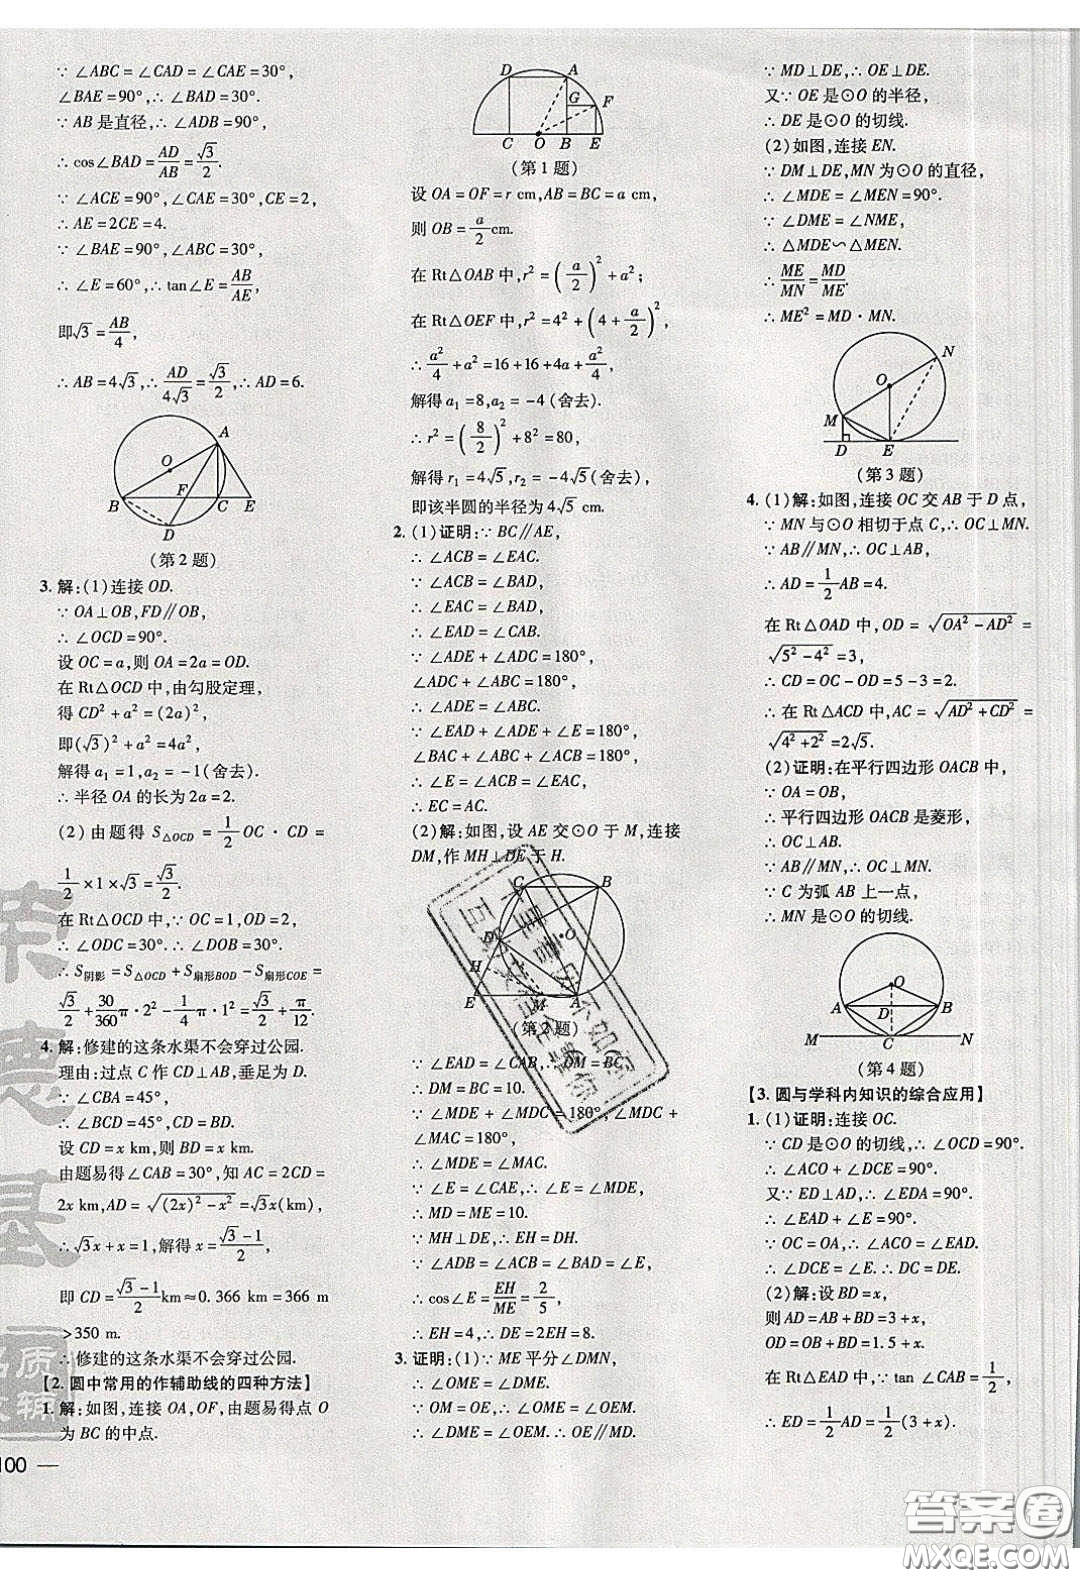 ∵ ∠ABC = ∠CAD = ∠CAE = 30°,
∠BAE = 90°, ∴ ∠BAD = 30°.
∵ AB 是直径, ∴ ∠ADB = 90°,
∴ cos∠BAD = AD/AB = √3/2.
∵ ∠ACE = 90°, ∠CAE = 30°, CE = 2,
∴ AE = 2CE = 4.
∵ ∠BAE = 90°, ∠ABC = 30°,
∴ ∠E = 60°, ∴ tan∠E = AB/AE,
即√3 = AB/4,
∴ AB = 4√3, ∴ AD/4√3 = √3/2, ∴ AD = 6.
A
O
B F C E
D
(第 2 题)
3. 解:(1)连接 OD.
∵ OA⊥OB, FD∥OB,
∴ ∠OCD = 90°.
设 OC = a, 则 OA = 2a = OD.
在 Rt△OCD 中, 由勾股定理,
得 CD² + a² = (2a)²,
即(√3)² + a² = 4a²,
解得 a₁ = 1, a₂ = -1(舍去).
∴ 半径 OA 的长为 2a = 2.
(2) 由题得 S△OCD = 1/2 OC · CD =
1/2 × 1 × √3 = √3/2.
在 Rt△OCD 中, ∵ OC = 1, OD = 2,
∴ ∠ODC = 30°. ∴ ∠DOB = 30°.
∴ S阴影 = S△OCD + S扇形BOD − S扇形COE =
√3/2 + 30/360 π · 2² − 1/4 π · 1² = √3/2 + π/12.
4. 解:修建的这条水渠不会穿过公园.
理由:过点 C 作 CD⊥AB, 垂足为 D.
∵ ∠CBA = 45°,
∴ ∠BCD = 45°, CD = BD.
设 CD = x km, 则 BD = x km.
由题易得∠CAB = 30°, 知 AC = 2CD =
2x km, AD = √(2x)² − x² = √3x(km),
∴ √3x + x = 1, 解得 x = √3−1/2,
即 CD = √3−1/2 km ≈ 0. 366 km = 366 m
>350 m.
∴ 修建的这条水渠不会穿过公园.
【2. 圆中常用的作辅助线的四种方法】
1. 解:如图, 连接 OA, OF, 由题易得点 O
为 BC 的中点.
100 —
D A
G F
C O B E
(第 1 题)
设 OA = OF = r cm, AB = BC = a cm,
则 OB = a/2 cm.
在 Rt△OAB 中, r² = (a/2)² + a²;
在 Rt△OEF 中, r² = 4² + (4 + a/2)²,
∴ a²/4 + a² = 16 + 16 + 4a + a²/4.
解得 a₁ = 8, a₂ = -4(舍去).
∴ r² = (8/2)² + 8² = 80,
解得 r₁ = 4√5, r₂ = -4√5(舍去),
即该半圆的半径为 4√5 cm.
2. (1)证明: ∵ BC∥AE,
∴ ∠ACB = ∠EAC.
∵ ∠ACB = ∠BAD,
∴ ∠EAC = ∠BAD,
∴ ∠EAD = ∠CAB.
∵ ∠ADE + ∠ADC = 180°,
∠ADC + ∠ABC = 180°,
∴ ∠ADE = ∠ABC.
∵ ∠EAD + ∠ADE + ∠E = 180°,
∠BAC + ∠ABC + ∠ACB = 180°,
∴ ∠E = ∠ACB = ∠EAC,
∴ EC = AC.
(2)解:如图, 设 AE 交⊙O 于 M, 连接
DM, 作 MH⊥DE 于 H.
C B
D O
H
E M A
(第 2 题)
∵ ∠EAD = ∠CAB, ∴ DM = BC.
∴ DM = BC = 10.
∵ ∠MDE + ∠MDC = 180°, ∠MDC +
∠MAC = 180°,
∴ ∠MDE = ∠MAC.
∵ ∠E = ∠CAE = ∠MDE,
∴ MD = ME = 10.
∵ MH⊥DE, ∴ EH = DH.
∵ ∠ADB = ∠ACB = ∠BAD = ∠E,
∴ cos∠E = EH/ME = 2/5,
∴ EH = 4, ∴ DE = 2EH = 8.
3. 证明:(1) ∵ ME 平分∠DMN,
∴ ∠OME = ∠DME.
∵ OM = OE, ∴ ∠OME = ∠OEM.
∴ ∠DME = ∠OEM, ∴ OE∥DM.
∵ MD⊥DE, ∴ OE⊥DE.
又∵ OE 是⊙O 的半径,
∴ DE 是⊙O 的切线.
(2)如图, 连接 EN.
∵ DM⊥DE, MN 为⊙O 的直径,
∴ ∠MDE = ∠MEN = 90°.
∵ ∠DME = ∠NME,
∴ △MDE∽△MEN.
∴ ME/MN = MD/ME,
∴ ME² = MD · MN.
N
O
M
D E
(第 3 题)
4. (1)解:如图, 连接 OC 交 AB 于 D 点,
∵ MN 与⊙O 相切于点 C, ∴ OC⊥MN.
∵ AB∥MN, ∴ OC⊥AB,
∴ AD = 1/2 AB = 4.
在 Rt△OAD 中, OD = √OA² − AD² =
√5² − 4² = 3,
∴ CD = OC − OD = 5 − 3 = 2.
∴ 在 Rt△ACD 中, AC = √AD² + CD² =
√4² + 2² = 2√5.
(2)证明:在平行四边形 OACB 中,
∵ OA = OB,
∴ 平行四边形 OACB 是菱形,
∴ OC⊥AB.
∵ AB∥MN, ∴ OC⊥MN.
∵ C 为弧 AB 上一点,
∴ MN 是⊙O 的切线.
O
A D B
M C N
(第 4 题)
【3. 圆与学科内知识的综合应用】
1. (1)证明:连接 OC.
∵ CD 是⊙O 的切线, ∴ ∠OCD = 90°.
∴ ∠ACO + ∠DCE = 90°.
又∵ ED⊥AD, ∴ ∠EDA = 90°.
∴ ∠A + ∠E = 90°.
∵ OC = OA, ∴ ∠ACO = ∠A.
∴ ∠DCE = ∠E. ∴ DC = DE.
(2)解:设 BD = x,
则 AD = AB + BD = 3 + x,
OD = OB + BD = 1. 5 + x.
在 Rt△EAD 中, ∵ tan ∠CAB = 1/2,
∴ ED = 1/2 AD = 1/2 (3 + x).
荣
德
基
名质
辅
答案圈
MXQE.COM